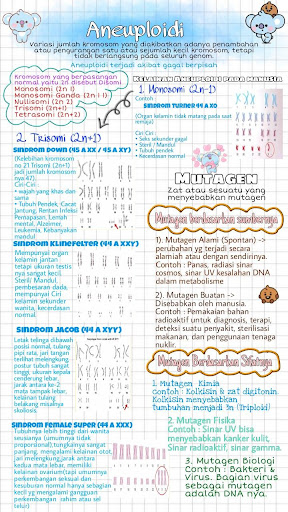 Aneuploidi
Variasi jumlah kromosom yang diakibatkan adanya penambahan
atau pengurangan satu atau sejumlah kecil kromosom, tetapi
tidak berlangsung pada seluruh genom.
Aneuploidi terjadi akibat gagal berpisah
Kromosom yang berpasangan
normal yaitu 2n disebut Disomi
Monosomi (2n-1)
Monosomi Ganda (2n-1-1)
Nullisomi (2n-2)
Trisomi (2n+1)
Tetrasomi (2n+2)
2. Trisomi (2n+1)
Sindrom Down (45 A XX / 45 A XY)
(Kelebihan kromosom
no 21 Trisomi (2n+1)
jadi jumlah kromosom
nya 47)
Ciri-Ciri:
• wajah yang khas dan
sama
• Tubuh Pendek, Cacat
Jantung, Rentan Infeksi
Pernapasan, Lemah
mental, Alzeimer,
Leukemia, Kebanyakan
mandul
Sindrom Klinefelter (44 A XXY)
Mempunyai organ
kelamin jantan
tetapi ukuran testis
nya sangat kecil.
Steril/ Mandul
pembesaran dada,
mempunyai Ciri
kelamin sekunder
wanita, kecerdasan
normal.
Sindrom Jacob (44 A XYY)
Letak telinga dibawah
posisi normal, tulang
pipi rata, jari tangan
terlihat melengkung
postur tubuh sangat
tinggi, ukuran kepala
cenderung lebar,
jarak antara ke-2
mata tampak lebar,
kelainan tulang
belakang misalnya
skoliosis.
Sindrom Female Super (44 A XXX)
Tubuhnya lebih tinggi dari wanita
seusianya (umumnya tidak
proporsional), tungkainya sangat
panjang, mengalami kelainan otot,
jari melengkung, jarak antara
kedua mata lebar, memiliki
kelainan ovarium(tapi umumnya
perkembangan seksual dan
kesuburan normal hanya sebagian
kecil yg mengalami gangguan
perkembangan rahim atau sel
telur)
Kelainan Aneuploidi Pada Manusia
1. Monosomi (2n-1)
Contoh:
Sindrom Turner 44 A XO
(Organ kelamin tidak matang pada saat
remaja)
Ciri-Ciri
• Seks sekunder gagal
• Steril / Mandul
• Tubuh pendek
• Kecerdasan normal
Mutagen
Zat atau sesuatu yang
menyebabkan mutagen
Mutagen berdasarkan sumbernya
1). Mutagen Alami (Spontan) ->
perubahan yg terjadi secara
alamiah atau dengan sendirinya.
Contoh : Panas, radiasi sinar
cosmos, sinar UV kesalahan DNA
dalam metabolisme
2). Mutagen Buatan ->
Disebabkan oleh manusia.
Contoh : Pemakaian bahan
radioaktif untuk diagnosis, terapi,
deteksi suatu penyakit, sterilisasi
makanan, dan penggunaan tenaga
nuklir.
Mutagen Berdasarkan Sifatnya
1. Mutagen Kimia
Contoh : Kolkisin & zat digitonin
Kolkisin menyebabkan
tumbuhan menjadi 3n (Triploid)
2. Mutagen Fisika
Contoh : Sinar UV bisa
menyebabkan kanker kulit,
Sinar radioaktif, sinar gamma.
3. Mutagen Biologi
Contoh : Bakteri &
Virus. Bagian virus
sebagai mutagen
adalah DNA nya.